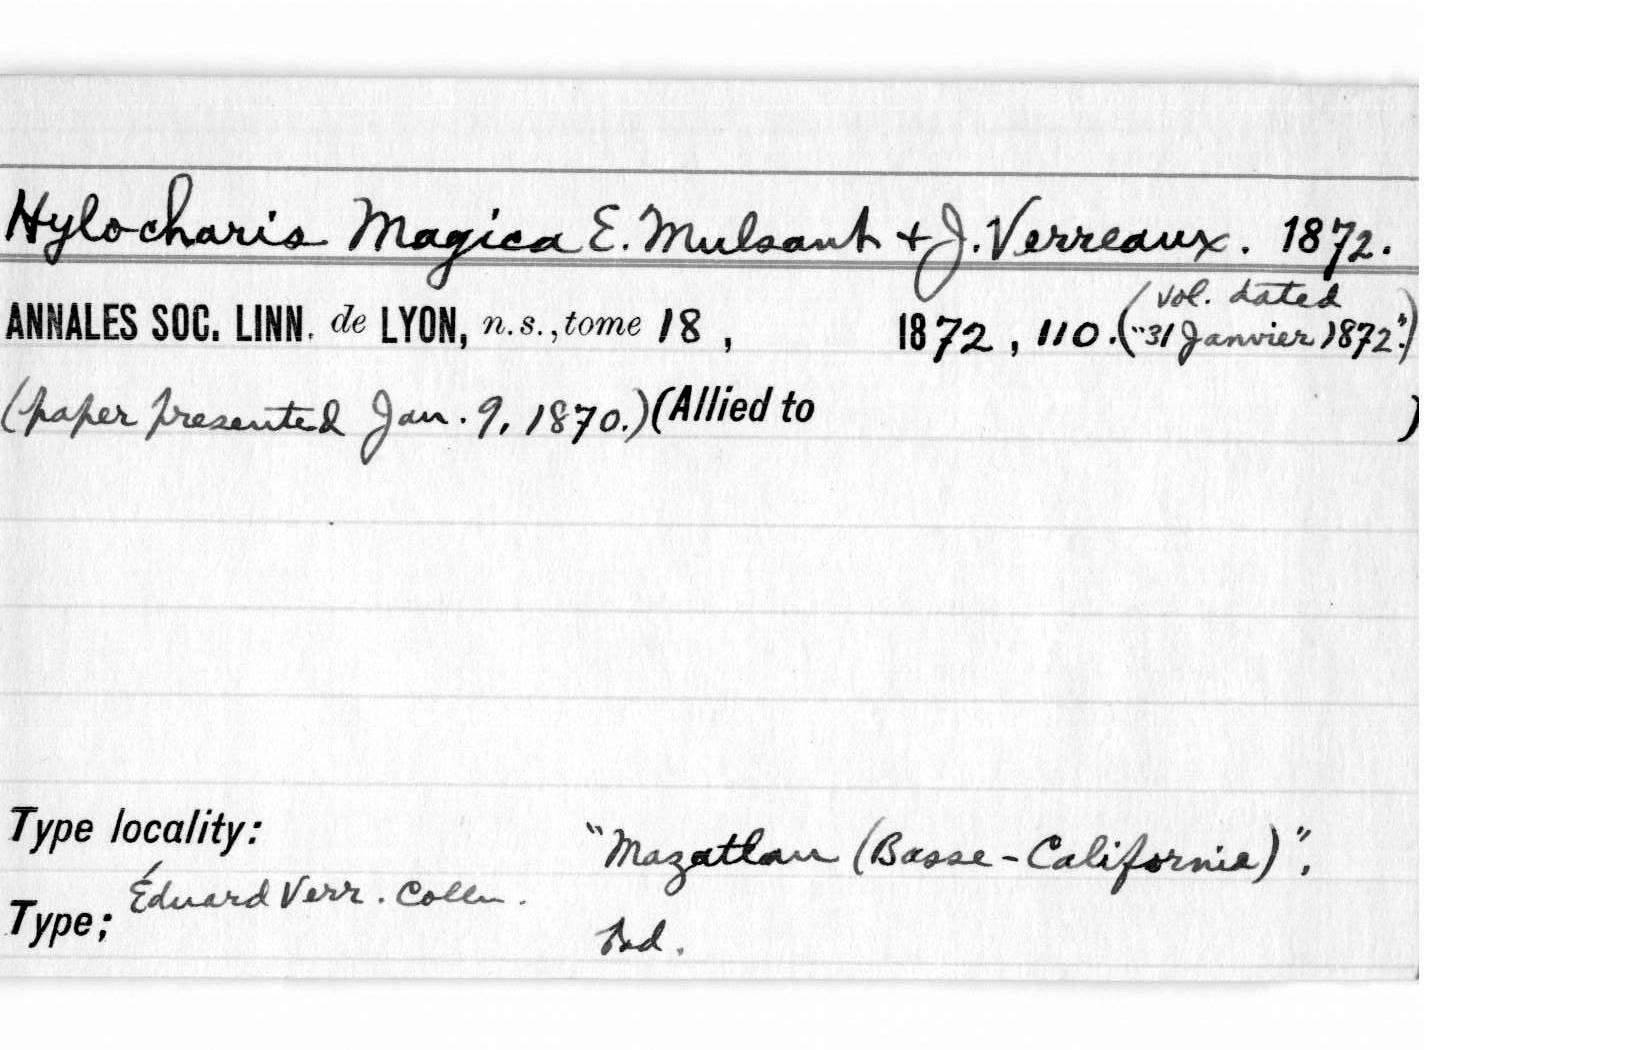 Hylocharis Magica E. Mulsant + J. Verreaux. 1872.
ANNALES SOC. LINN. de LYON, n.s., tome 18, 1872, 110. (vol. dated "31 Janvier 1872".)
(paper presented Jan. 9, 1870.) (Allied to )
Type locality: "Mazatlan (Basse-California)",
Type; Éduard Verr. Colln.